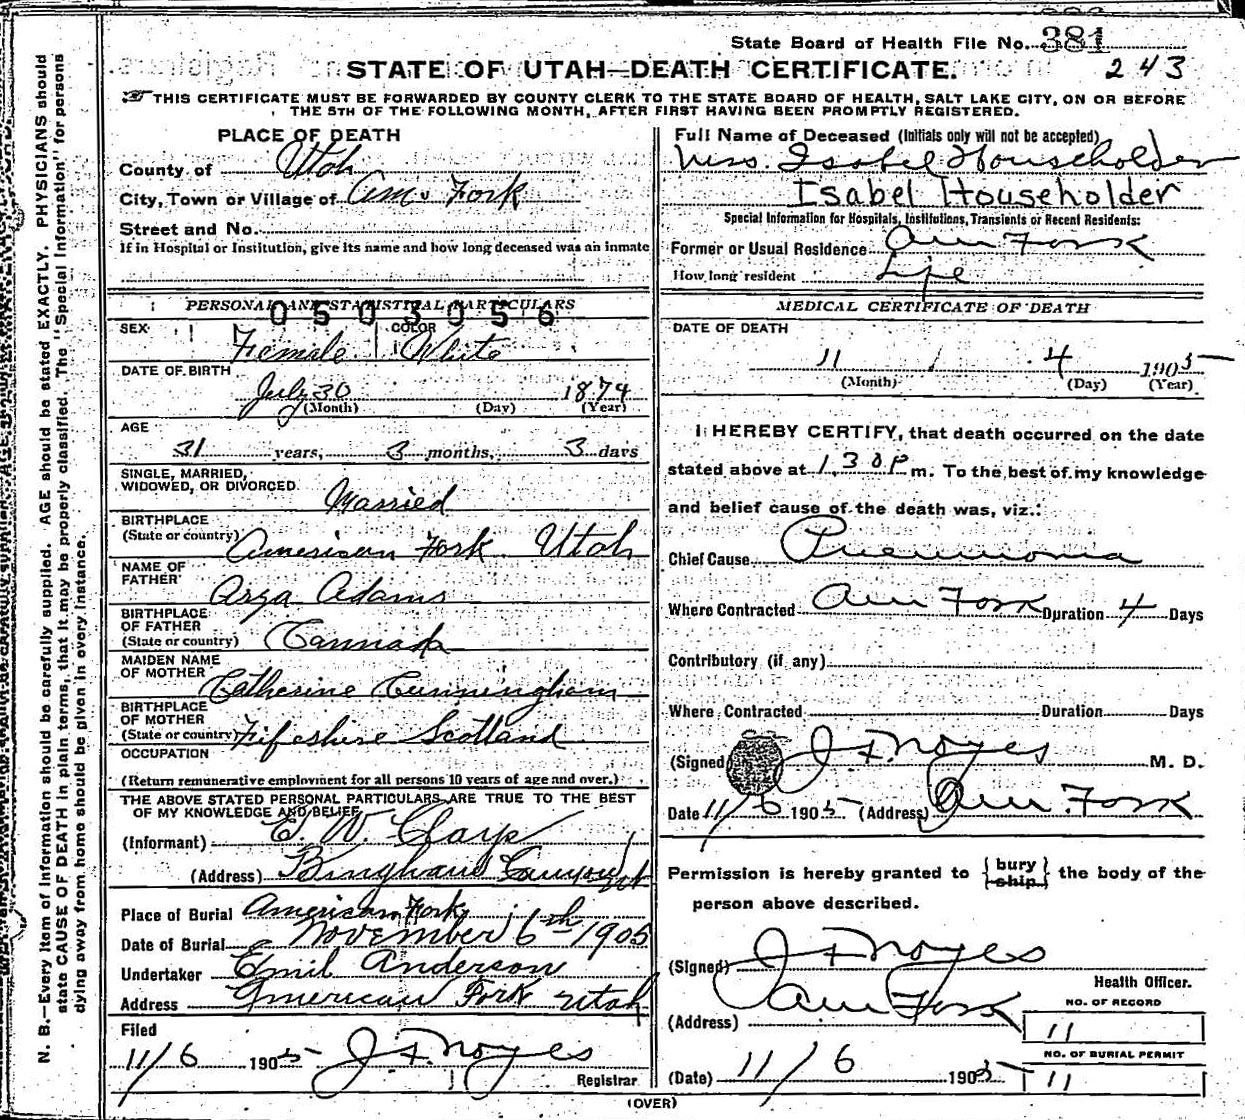 State Board of Health File No. 381
STATE OF UTAH—DEATH CERTIFICATE.
243
THIS CERTIFICATE MUST BE FORWARDED BY COUNTY CLERK TO THE STATE BOARD OF HEALTH, SALT LAKE CITY, ON OR BEFORE
THE 5TH OF THE FOLLOWING MONTH, AFTER FIRST HAVING BEEN PROMPTLY REGISTERED.
PLACE OF DEATH
County of Utah
City, Town or Village of Am. Fork
Street and No.
If in Hospital or Institution, give its name and how long deceased was an inmate
PERSONAL AND STATISTICAL PARTICULARS
0503056
SEX Female COLOR White
DATE OF BIRTH
July 30 1874
(Month) (Day) (Year)
AGE
31 years, 3 months, 3 days
SINGLE, MARRIED,
WIDOWED, OR DIVORCED Married
BIRTHPLACE
(State or country) American Fork Utah
NAME OF
FATHER Arza Adams
BIRTHPLACE
OF FATHER
(State or country) Cannada
MAIDEN NAME
OF MOTHER Catherine Cunningham
BIRTHPLACE
OF MOTHER
(State or country) Fifeshire Scotland
OCCUPATION
(Return remunerative employment for all persons 10 years of age and over.)
THE ABOVE STATED PERSONAL PARTICULARS ARE TRUE TO THE BEST
OF MY KNOWLEDGE AND BELIEF
(Informant) E. W. Clays
(Address) Bingham
Place of Burial American Fork
Date of Burial November 6th 1905
Undertaker Emil Anderson
Address American Fork Utah
Filed
11/6 1905 J F Noyes
Registrar
Full Name of Deceased (Initials only will not be accepted)
Mrs. Isabel Householder
Isabel Householder
Special Information for Hospitals, Institutions, Transients or Recent Residents:
Former or Usual Residence Am Fork
How long resident Life
MEDICAL CERTIFICATE OF DEATH
DATE OF DEATH
11 / 4 1905
(Month) (Day) (Year)
I HEREBY CERTIFY, that death occurred on the date
stated above at 1.30 P m. To the best of my knowledge
and belief cause of the death was, viz.:
Chief Cause Pneumonia
Where Contracted Am Fork Duration 4 Days
Contributory (if any)
Where Contracted Duration Days
(Signed) J. F. Noyes M. D.
Date 11/6 1905 (Address) Am. Fork
Permission is hereby granted to {bury
ship} the body of the
person above described.
(Signed) J F Noyes
Health Officer.
(Address) Am Fork
NO. OF RECORD
11
NO. OF BURIAL PERMIT
(Date) 11/6 1905 11
(OVER)
N. B.—Every item of information should be carefully supplied. AGE should be stated EXACTLY. PHYSICIANS should
state CAUSE OF DEATH in plain terms, that it may be properly classified. The "Special Information" for persons
dying away from home should be given in every instance.